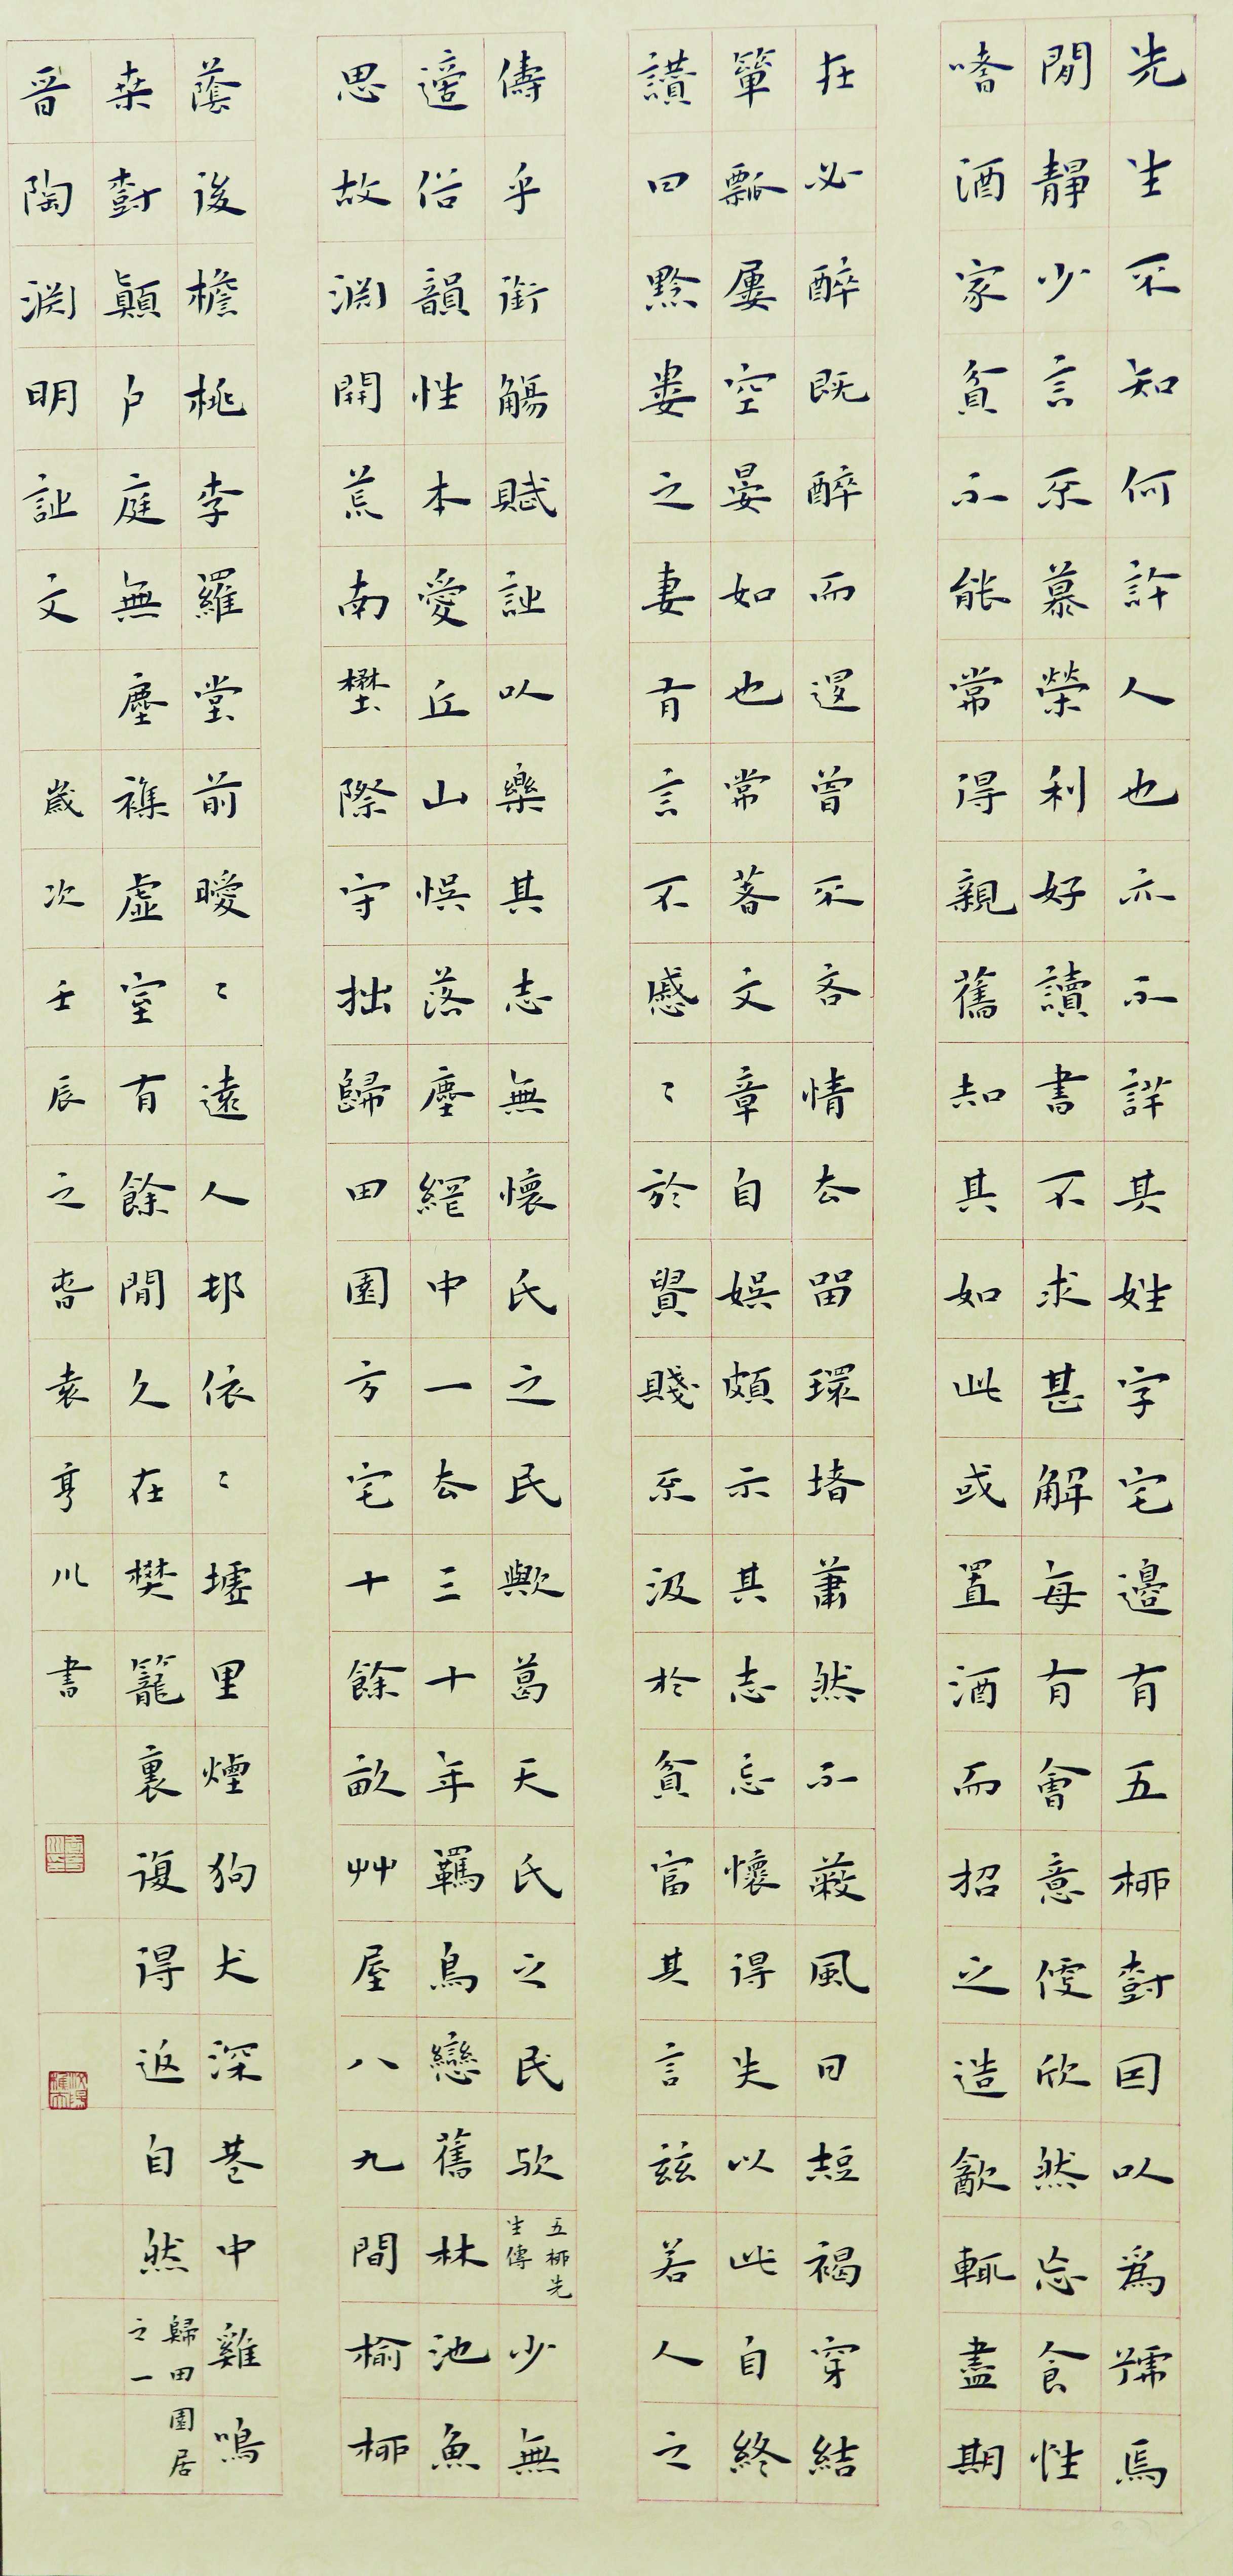 先生不知何許人也亦不詳其姓字宅邊有五柳樹因以爲號焉
閒靜少言不慕榮利好讀書不求甚解每有會意便欣然忘食性
嗜酒家貧不能常得親舊知其如此或置酒而招之造飲輒盡期
在必醉既醉而退曾不吝情去留環堵蕭然不蔽風日短褐穿結
簞瓢屢空晏如也常著文章自娛頗示其志忘懷得失以此自終
讚曰黔婁之妻有言不慼〻於貴賤不汲於貧富其言茲若人之
儔乎銜觴賦詩以樂其志無懷氏之民歟葛天氏之民歟五柳先生傳少無
適俗韻性本愛丘山悞落塵網中一去三十年羈鳥戀舊林池魚
思故淵開荒南壄際守拙歸田園方宅十餘畝艸屋八九間榆柳
蔭後檐桃李羅堂前曖〻遠人邨依〻墟里煙狗犬深巷中雞鳴
桒樹顛戶庭無塵襍虛室有餘閒久在樊籠裏復得返自然歸田園居之一
晉陶淵明詩文 歲次壬辰之春袁亨川書